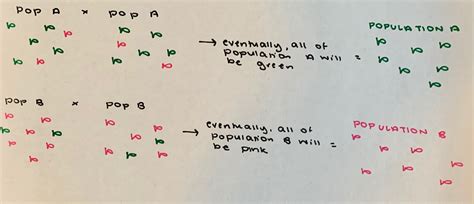 POP A x POP A
→ eventually, all of
population A will =
be green
POPULATION A
POP B x POP B
→ eventually, all of
population B will =
be pink
POPULATION B